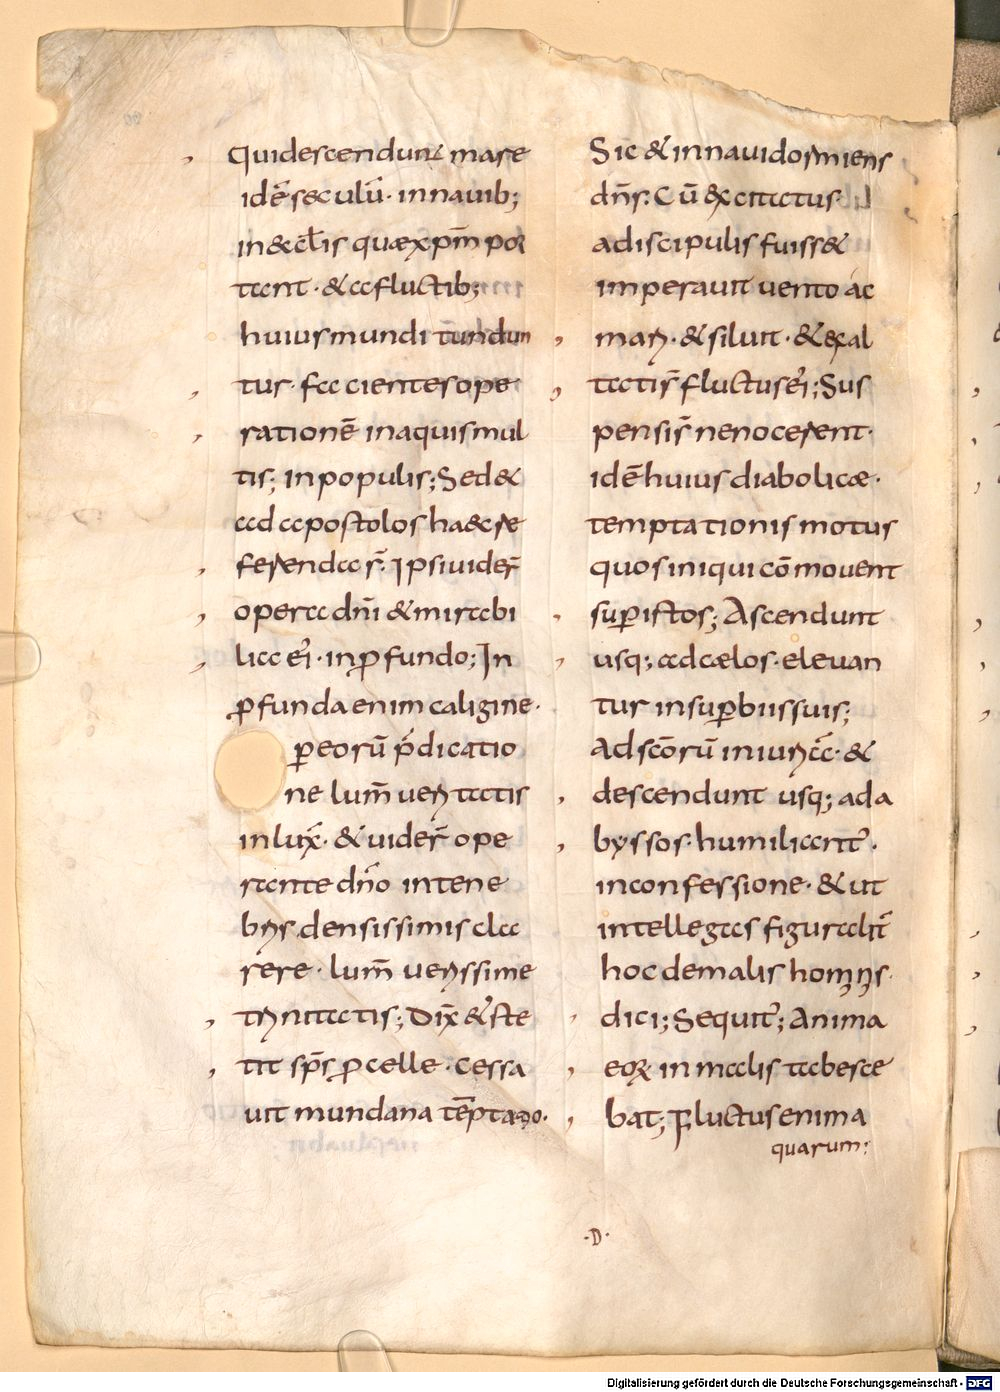 Quidescendunt mare
idē seculū· innauib;
in&cl̄is quæ xp̄m por
tant· & a fluctib;
huius mundi tundun
tur· facientes ope
rationē in aquis mul
tis; in populis; Sed &
ad apostolos haec re
ferenda s̄· Ipsi uider̄
opera dn̄i & mirabi
lia ei· in ꝓfundo; In
ꝓfunda enim caligine·
ꝑ eorū p̄dicatio
ne lum̄ ueritatis
in lux̄· & uider̄ ope
rante dn̄o in tene
bris densissimis cla
rere· lum̄ uerissime
trinitatis; Dix̄ & ste
tit sp̄s ꝓcelle· cessa
uit mundana tēptatio·
Sic & in naui dormiens
dn̄s· Cū excitatus
a discipulis fuiss&
imperauit uento ac
mari· & siluit· & exal
tati s̄ fluctus ei; Sus
pensi s̄ ne nocerent·
idē huius diabolicæ·
temptationis motus
quos iniqui cōmouent
suꝑ istos; Ascendunt
usq; ad cælos· eleuan
tur in suꝑbiis suis;
Ad sc̄orū iniuriā· &
descendunt usq; ad a
byssos· humiliant̄·
in confessione· & ut
intellegas figuralit̄
hoc de malis hominis·
dici; Sequit̄; Anima
eoꝝ in malis tabesce
bat; Fluctus enim a
quarum;
·D·
Digitalisierung gefördert durch die Deutsche Forschungsgemeinschaft - DFG